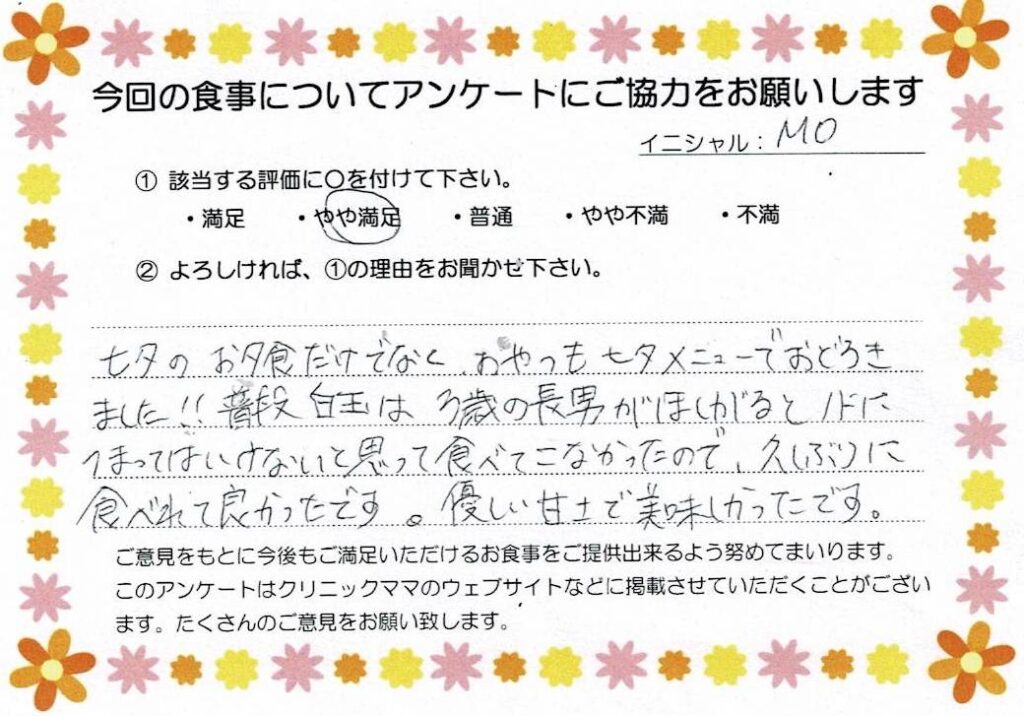 今回の食事についてアンケートにご協力をお願いします
イニシャル：MO
① 該当する評価に〇を付けて下さい。
・満足 ・やや満足 ・普通 ・やや不満 ・不満
② よろしければ、①の理由をお聞かせ下さい。
七夕の お夕食だけでなく、おやつも 七夕メニューでおどろき
ました!! 普段 白玉は 3歳の長男がほしがるとノドに
つまってはいけないと思って食べてこなかったので、久しぶりに
食べれて良かったです。優しい甘土で美味しかったです。
ご意見をもとに今後もご満足いただけるお食事をご提供出来るよう努めてまいります。
このアンケートはクリニックママのウェブサイトなどに掲載させていただくことがござい
ます。たくさんのご意見をお願い致します。